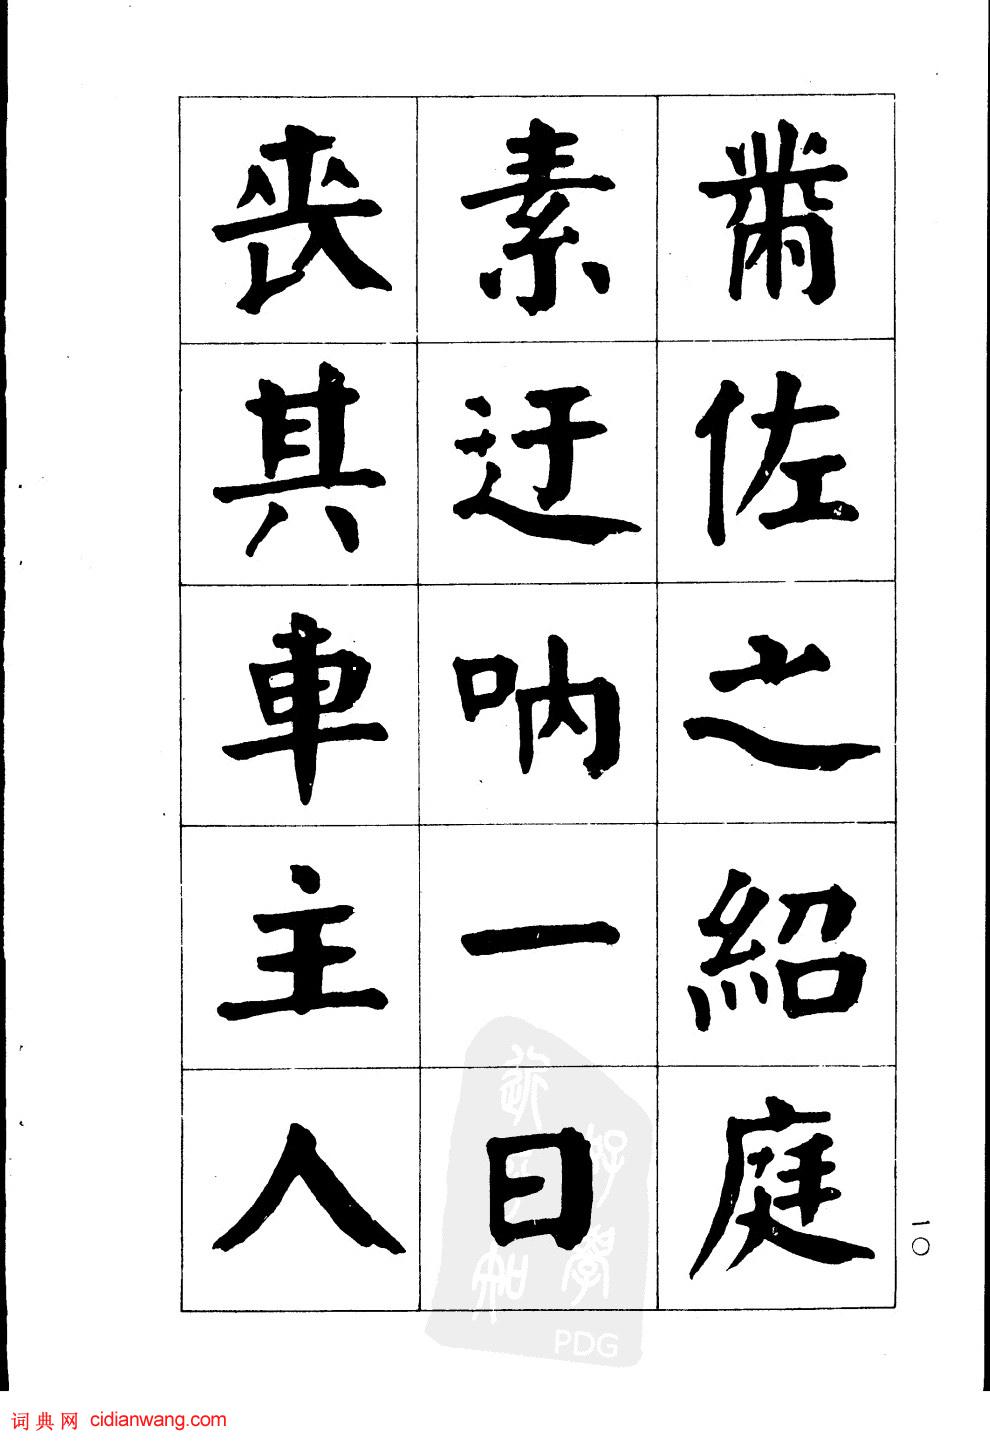 黹佐之紹庭
素迂呐一日
喪其車主人
一〇
好學
近乎知
PDG
词典网 cidianwang.com